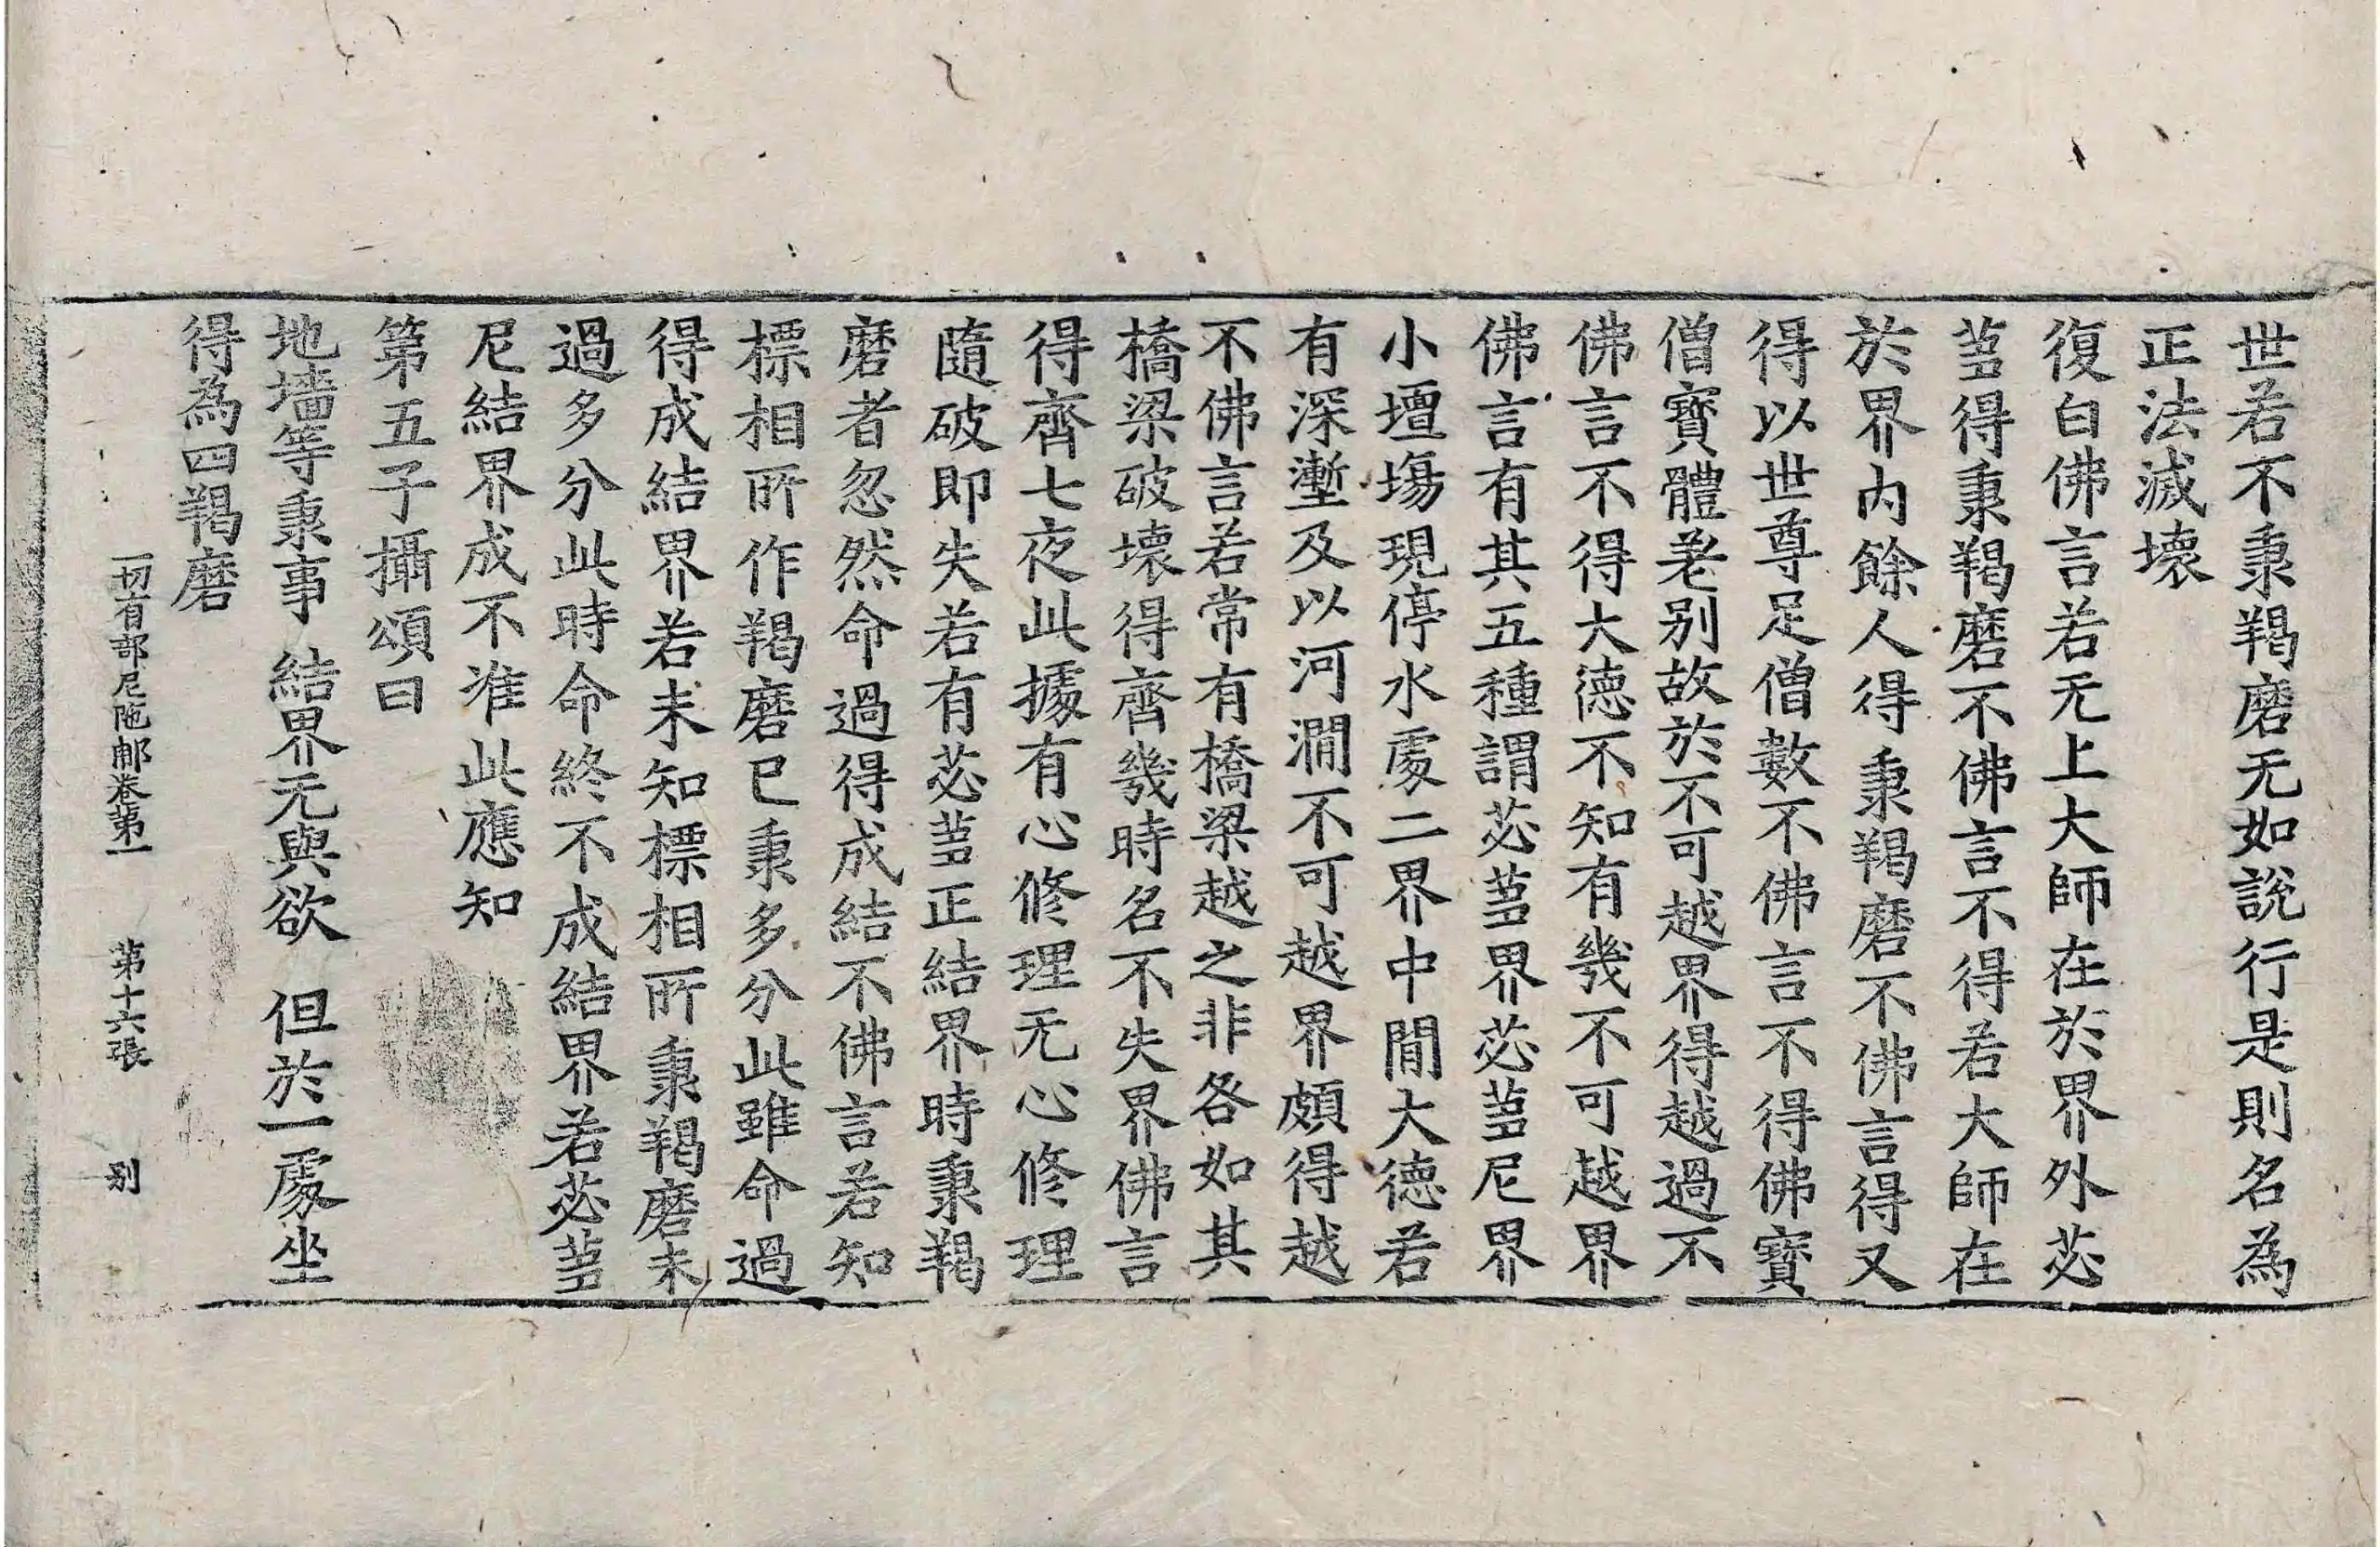 世若不秉羯磨无如說行是則名為
正法滅壞
復白佛言若无上大師在於界外苾
芻得秉羯磨不佛言不得若大師在
於界內餘人得秉羯磨不佛言得又
得以世尊足僧數不佛言不得佛寶
僧寶體老別故於不可越界得越過不
佛言不得大德不知有幾不可越界
佛言有其五種謂苾芻界苾芻尼界
小壇場現停水處二界中間大德若
有深塹及以河澗不可越界頗得越
不佛言若常有橋梁越之非各如其
橋梁破壞得齊幾時名不失界佛言
得齊七夜此據有心修理无心修理
隨破即失若有苾芻正結界時秉羯
磨者忽然命過得成結不佛言若知
標相所作羯磨已秉多分此雖命過
得成結界若未知標相所秉羯磨未
過多分此時命終不成結界若苾芻
尼結界成不准此應知
第五子攝頌曰
地墻等秉事　結界无與欲　但於一處坐
得為四羯磨
一切有部尼陁那卷第一　第十六張　别